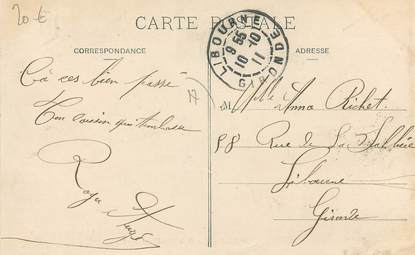 20 €
CARTE POSTALE
CORRESPONDANCE
ADRESSE
LIBOURNE
9 55
10 - 10
11
GIRONDE
Ça ces bien passé
Ton cousin qui t'embrasse
Roger
M Elle Anna Richet
58 Rue de La
Libourne
Gironde